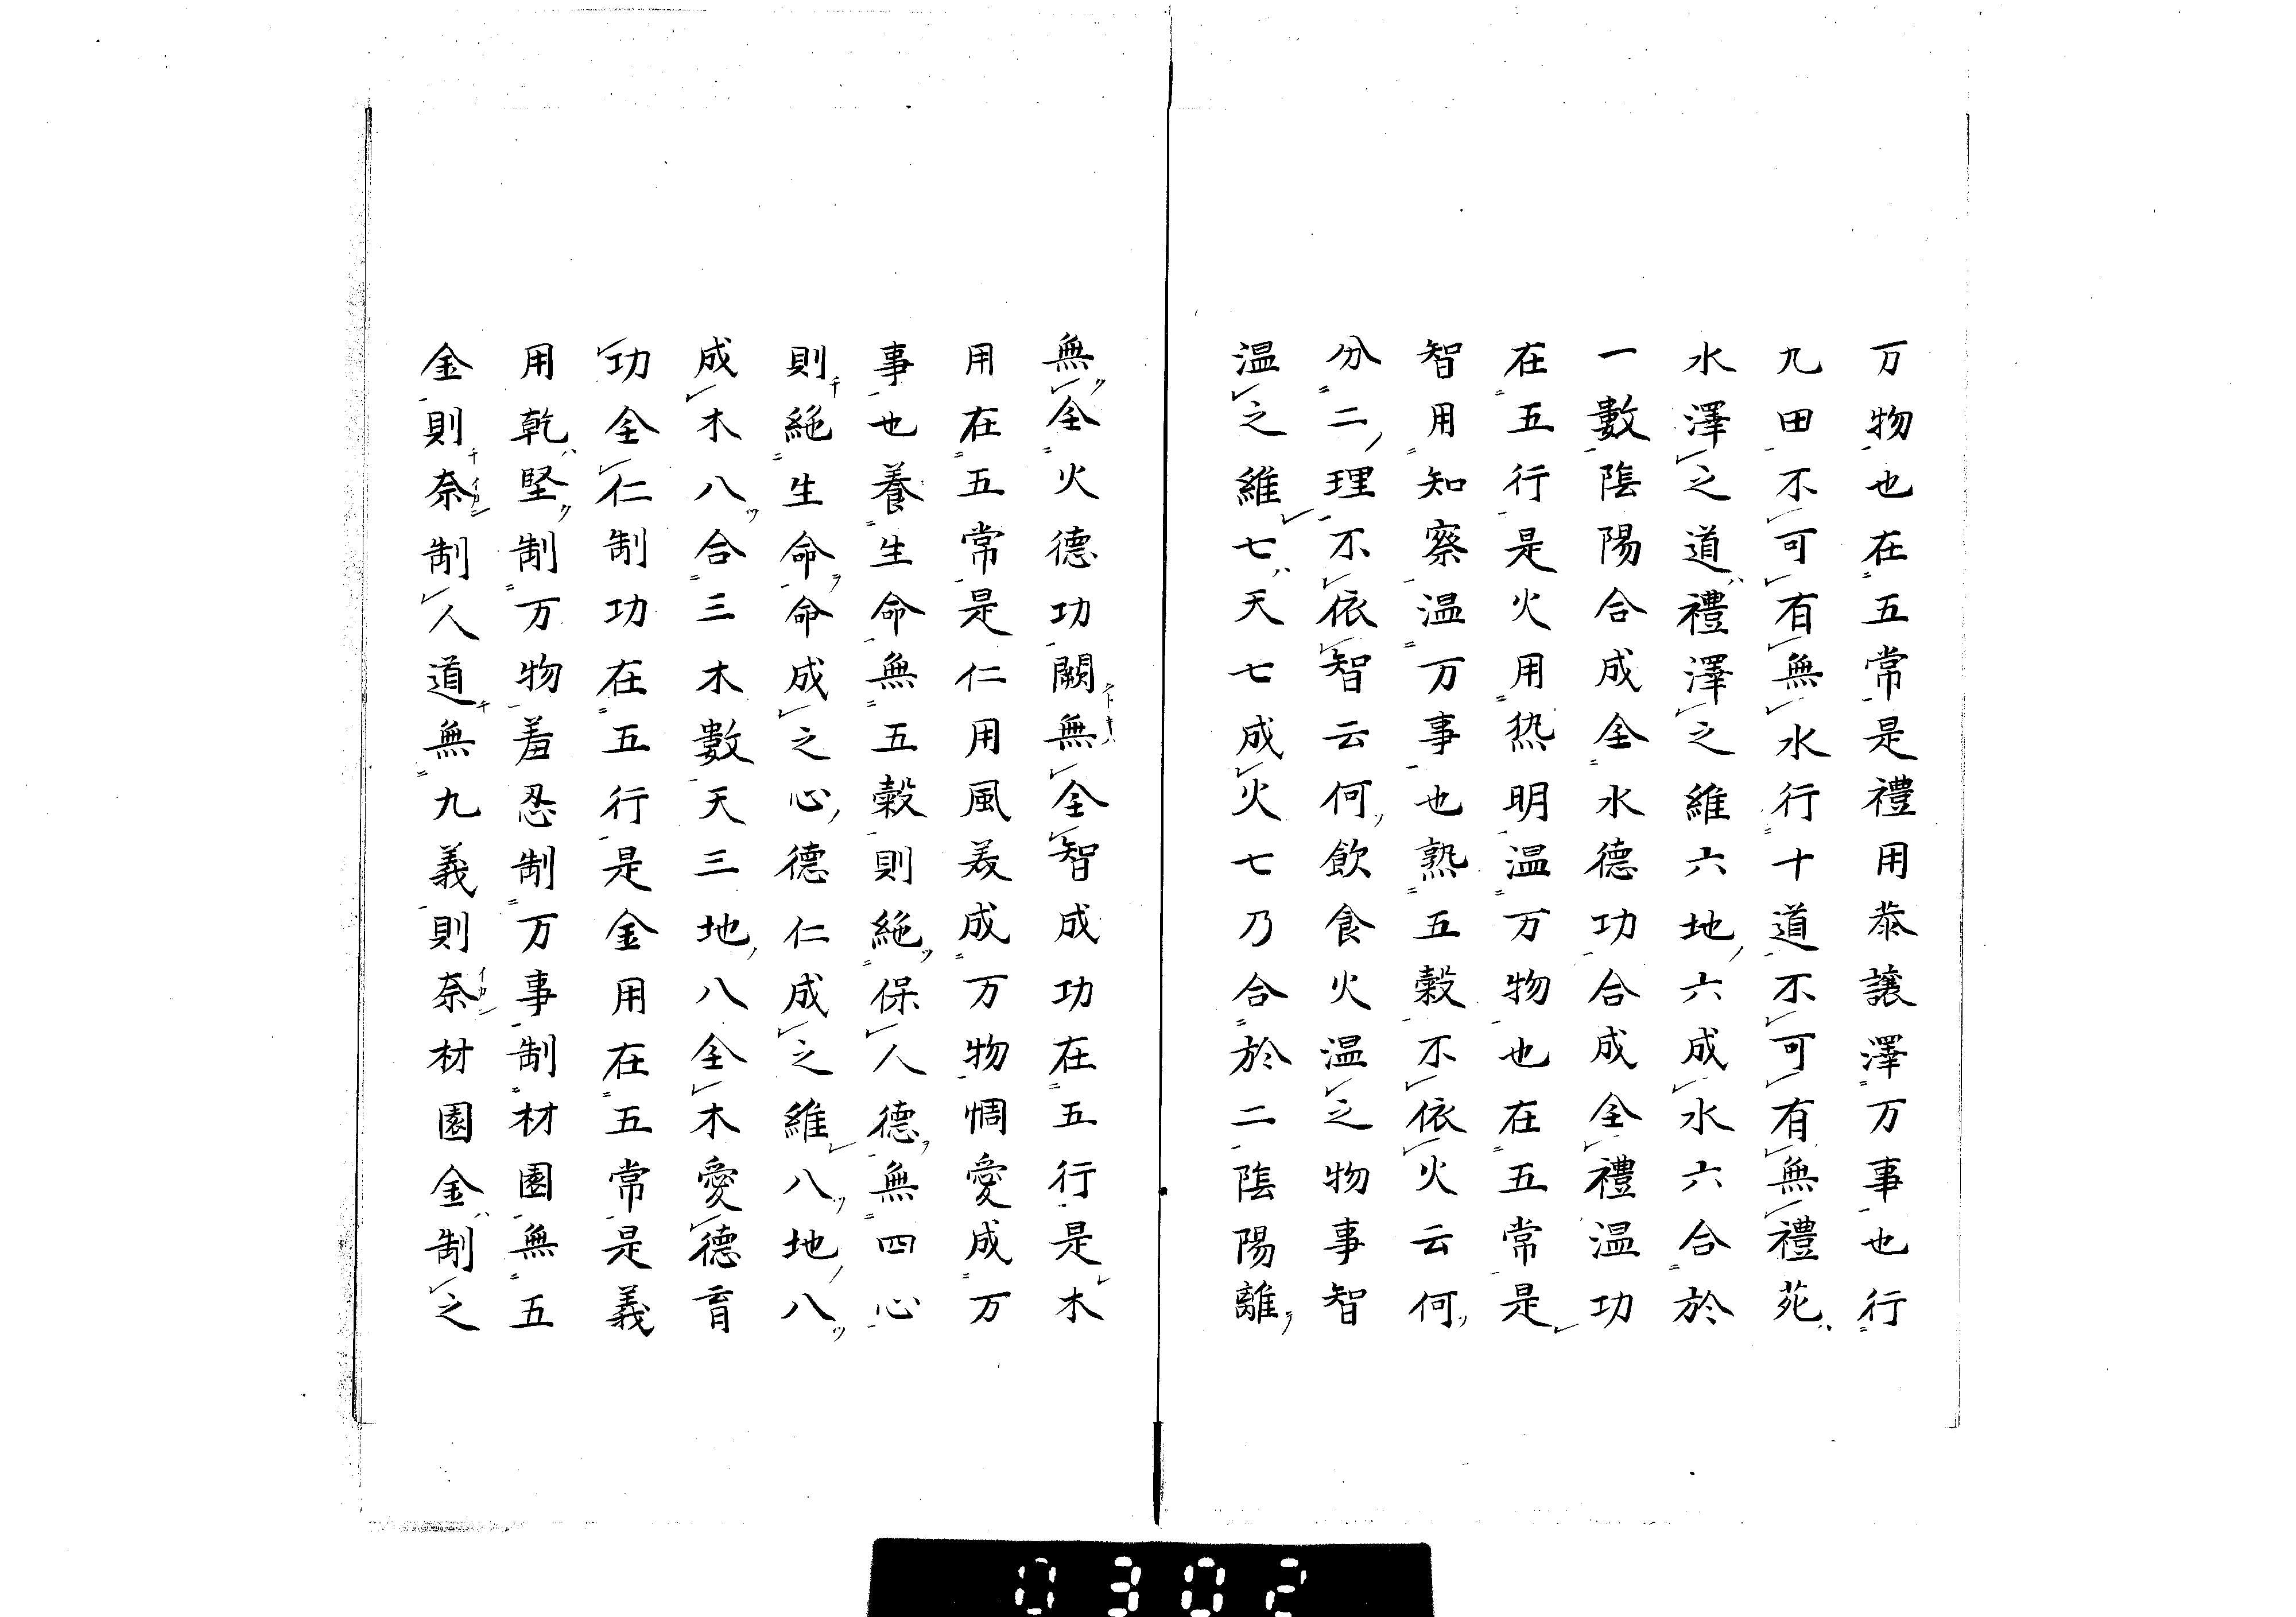 万物也在五常是禮用恭讓澤万事也行
九田不可有無水行十道不可有無禮苑
水澤之道禮澤之維六地六成水六合於
一數陰陽合成全水德功合成全禮温功
在五行是火用热明温万物也在五常是
智用知察温万事也熟五穀不依火云何
分二理不依智云何飲食火温之物事智
温之維七天七成火七乃合於二陰陽離
無全火德功闕無全智成功在五行是木
用在五常是仁用風羙成万物惆愛成万
事也養生命無五穀則絶保人德無四心
則絶生命命成之心德仁成之維八地八
成木八合三木數天三地八全木愛德育
功全仁制功在五行是金用在五常是義
用乾堅制万物羞忍制万事制材園無五
金則奈制人道無九義則奈材園金制之
0302